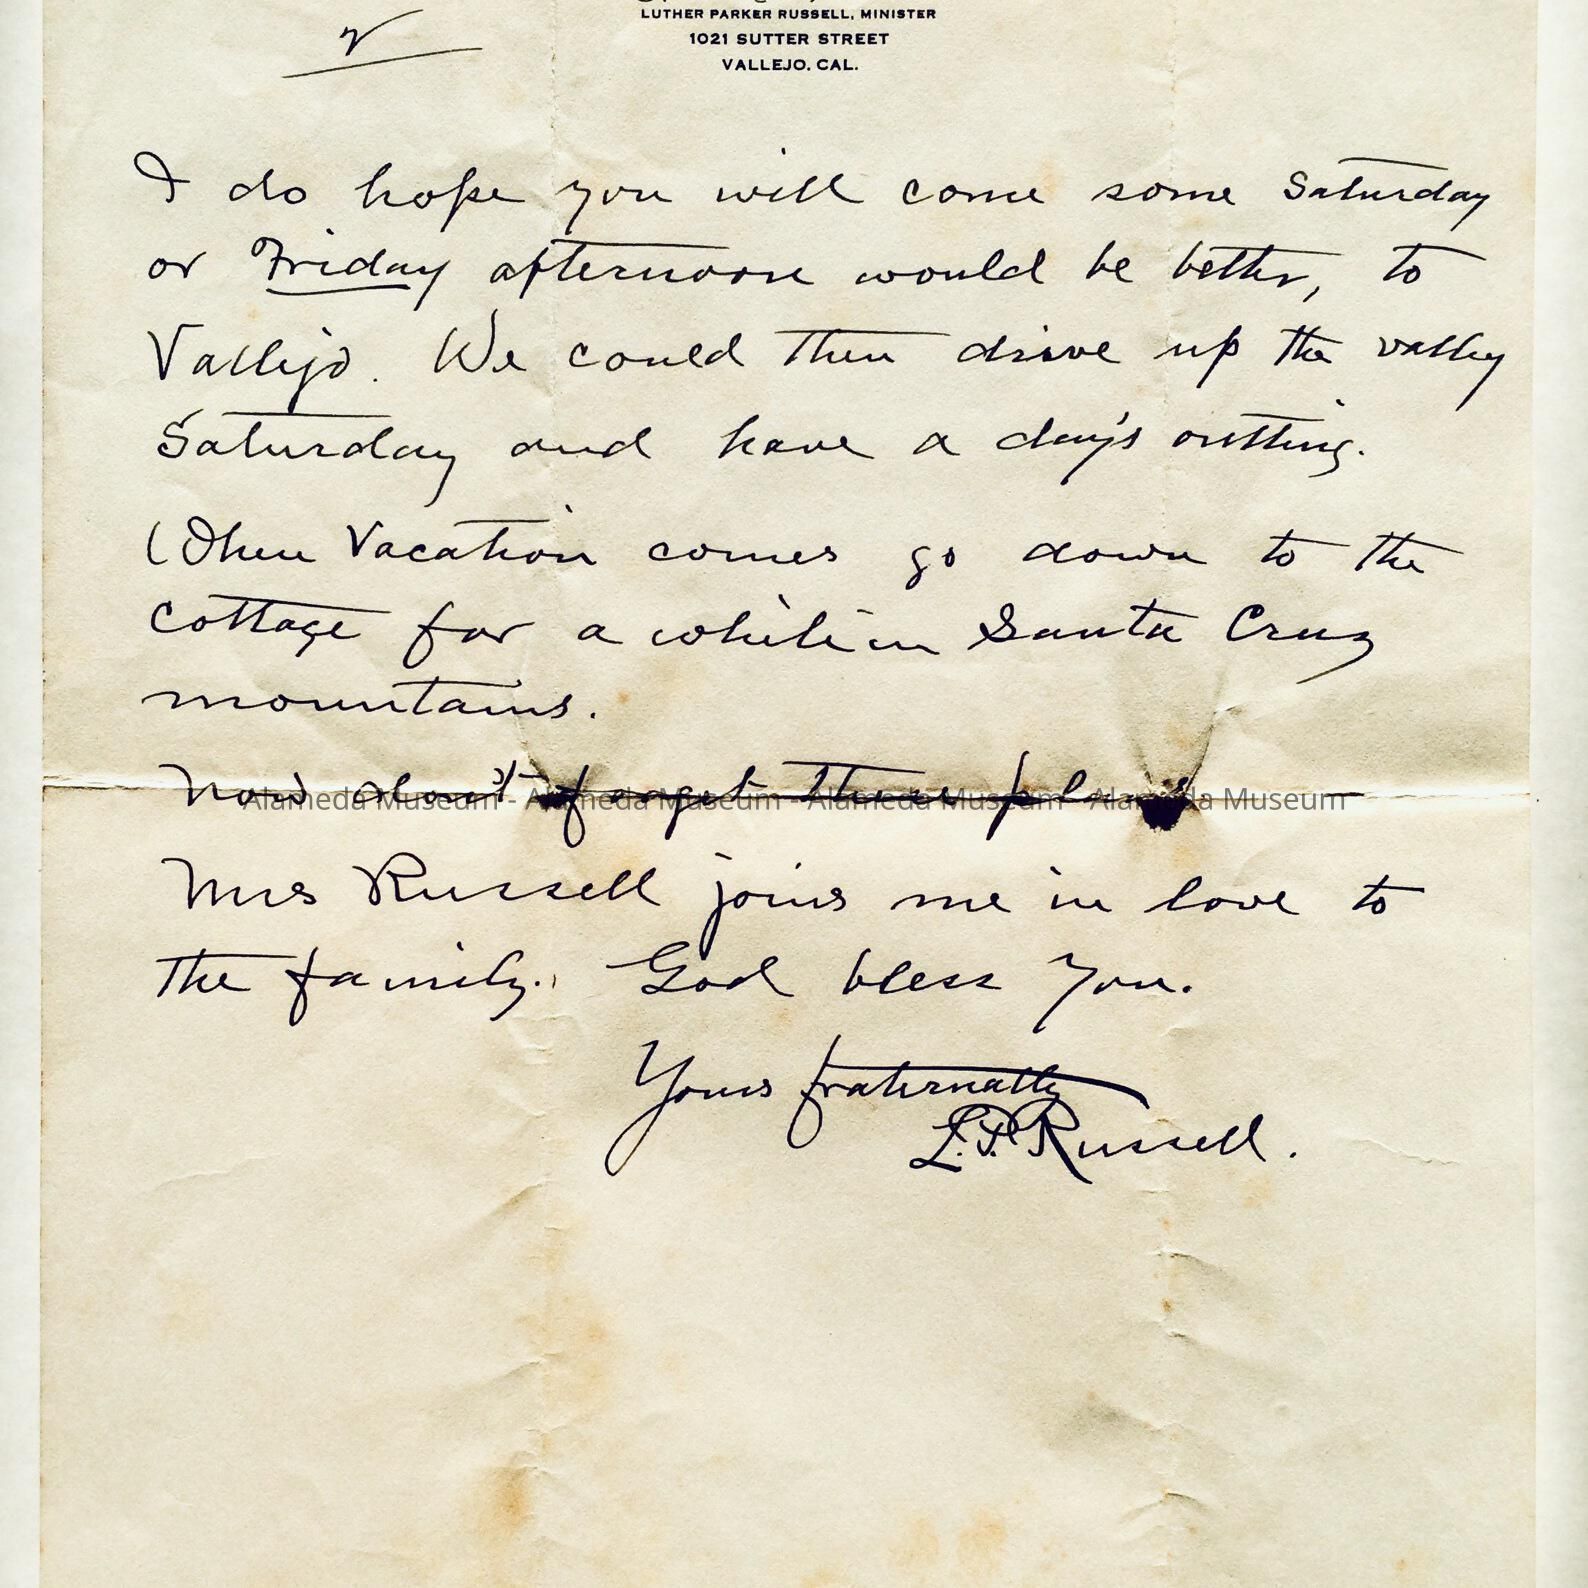 LUTHER PARKER RUSSELL, MINISTER
1021 SUTTER STREET
VALLEJO, CAL.
I do hope you will come some Saturday
or Friday afternoon would be better, to
Vallejo. We could then drive up the valley
Saturday and have a day's outting.
When Vacation comes go down to the
cottage for a while in Santa Cruz
mountains.
Now don't forget these plans
Alameda Museum - Alameda Museum - Alameda Museum - Alameda Museum
Mrs Russell joins me in love to
the family. God bless you.
Yours fraternally
L.P. Russell.